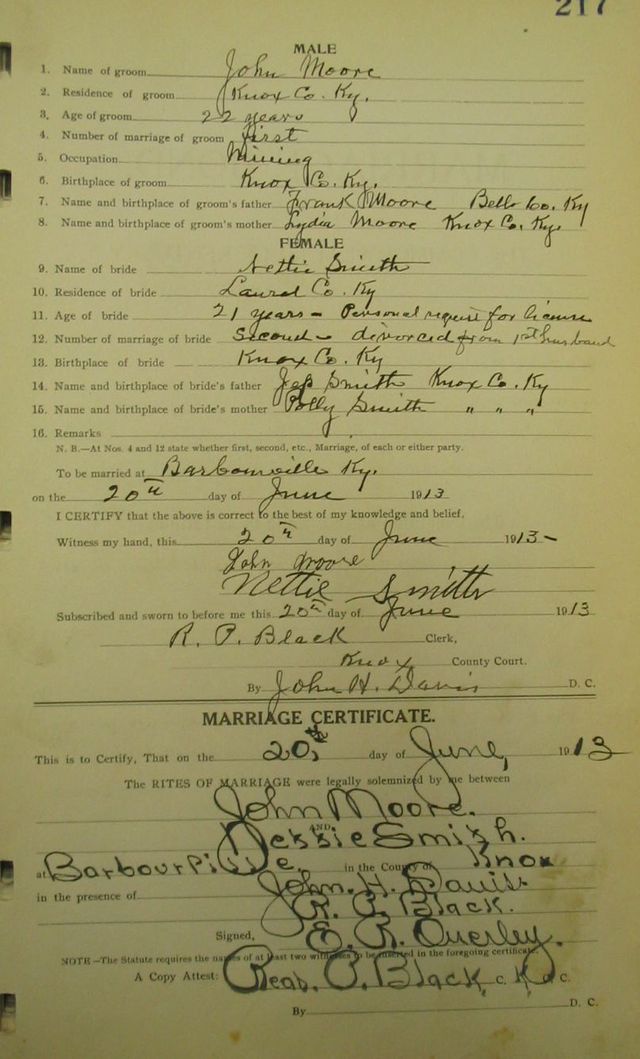 217
MALE
1. Name of groom John Moore
2. Residence of groom Knox Co. Ky.
3. Age of groom 22 years
4. Number of marriage of groom first
5. Occupation Mining
6. Birthplace of groom Knox Co. Ky.
7. Name and birthplace of groom's father Frank Moore Bell Co. Ky
8. Name and birthplace of groom's mother Lydia Moore Knox Co. Ky.
FEMALE
9. Name of bride Nettie Smith
10. Residence of bride Laurel Co. Ky
11. Age of bride 21 years - Personal request for license
12. Number of marriage of bride Second - divorced from 1st husband
13. Birthplace of bride Knox Co. Ky
14. Name and birthplace of bride's father Smith Knox Co. Ky
15. Name and birthplace of bride's mother Polly Smith " " "
16. Remarks
N. B.—At Nos. 4 and 12 state whether first, second, etc., Marriage, of each or either party.
To be married at Barbourville Ky.
on the 20th day of June 1913
I CERTIFY that the above is correct to the best of my knowledge and belief.
Witness my hand, this 20th day of June 1913-
John Moore
Nettie Smith
Subscribed and sworn to before me this 20th day of June 1913
R. P. Black Clerk,
Knox County Court.
By John H. Davis D. C.
MARRIAGE CERTIFICATE.
This is to Certify, That on the 20th day of June, 1913
The RITES OF MARRIAGE were legally solemnized by me between
John Moore.
AND
Nettie Smith.
at Barbourville. in the County of Knox
in the presence of John. H. Davis
R. P. Black.
Signed, E. R. Overley.
NOTE—The Statute requires the names of at least two witnesses to be inserted in the foregoing certificate.
A Copy Attest: Read. P. Black, C. K. C.
By D. C.